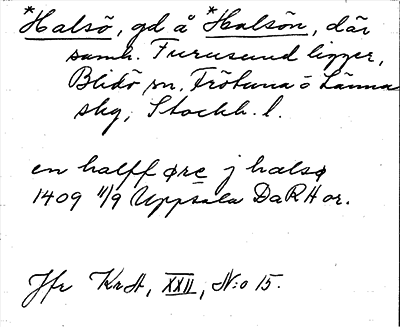 *Halsö, gd å *Halsön, där
samh. Furusund ligger,
Blidö sn, Frötuna o Länna
skg, Stockh. l.
en halff øre j halsø
1409 11/9 Uppsala DaRA or.
Jfr KrA, XXII, N:o 15.